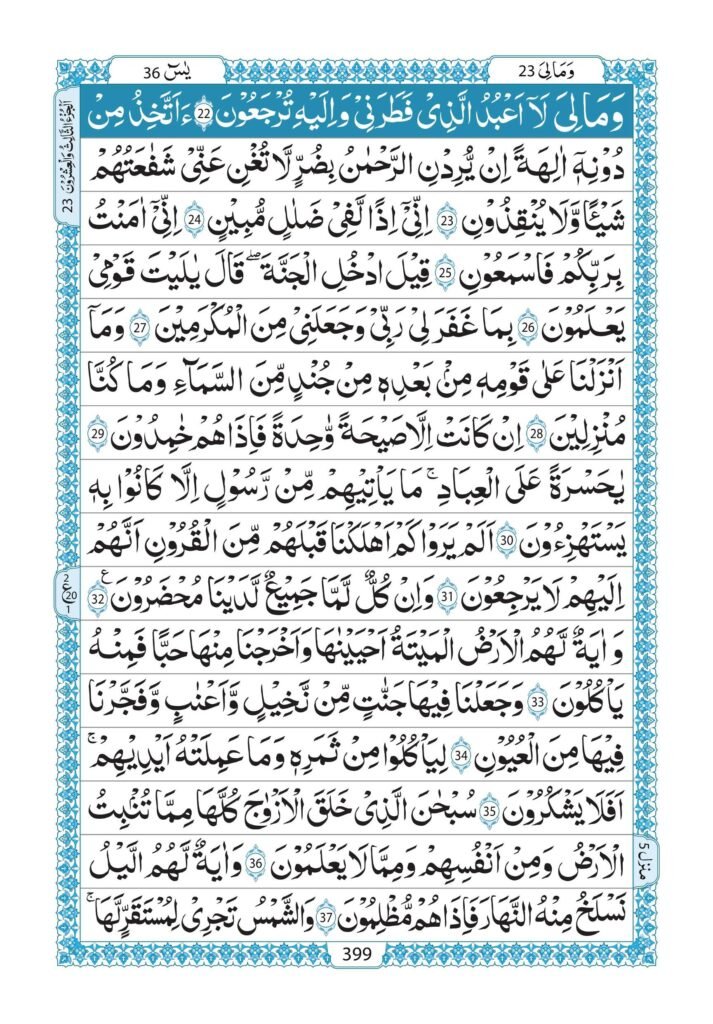 یٰسٓ 36
وَمَالِیَ 23
اَلْجُزْءُ الثَّالِثُ وَالْعِشْرُوْنَ 23
وَمَالِیَ لَاۤ اَعْبُدُ الَّذِیْ فَطَرَنِیْ وَاِلَیْهِ تُرْجَعُوْنَ 22 ءَاَتَّخِذُ مِنْ
دُوْنِهٖۤ اٰلِهَةً اِنْ یُّرِدْنِ الرَّحْمٰنُ بِضُرٍّ لَّا تُغْنِ عَنِّیْ شَفٰعَتُهُمْ
شَیْـًٔا وَّلَا یُنْقِذُوْنِ 23 اِنِّیْۤ اِذًا لَّفِیْ ضَلٰلٍ مُّبِیْنٍ 24 اِنِّیْۤ اٰمَنْتُ
بِرَبِّكُمْ فَاسْمَعُوْنِ 25 قِیْلَ ادْخُلِ الْجَنَّةَ ؕ قَالَ یٰلَیْتَ قَوْمِیْ
یَعْلَمُوْنَ 26 بِمَا غَفَرَ لِیْ رَبِّیْ وَجَعَلَنِیْ مِنَ الْمُكْرَمِیْنَ 27 وَمَاۤ
اَنْزَلْنَا عَلٰی قَوْمِهٖ مِنْۢ بَعْدِهٖ مِنْ جُنْدٍ مِّنَ السَّمَآءِ وَمَا كُنَّا
مُنْزِلِیْنَ 28 اِنْ كَانَتْ اِلَّا صَیْحَةً وَّاحِدَةً فَاِذَا هُمْ خٰمِدُوْنَ 29
یٰحَسْرَةً عَلَی الْعِبَادِ ۚ مَا یَاْتِیْهِمْ مِّنْ رَّسُوْلٍ اِلَّا كَانُوْا بِهٖ
یَسْتَهْزِءُوْنَ 30 اَلَمْ یَرَوْا كَمْ اَهْلَكْنَا قَبْلَهُمْ مِّنَ الْقُرُوْنِ اَنَّهُمْ
اِلَیْهِمْ لَا یَرْجِعُوْنَ 31 وَاِنْ كُلٌّ لَّمَّا جَمِیْعٌ لَّدَیْنَا مُحْضَرُوْنَ 32 ع
2 ع 20 1
وَاٰیَةٌ لَّهُمُ الْاَرْضُ الْمَیْتَةُ اَحْیَیْنٰهَا وَاَخْرَجْنَا مِنْهَا حَبًّا فَمِنْهُ
یَاْكُلُوْنَ 33 وَجَعَلْنَا فِیْهَا جَنّٰتٍ مِّنْ نَّخِیْلٍ وَّاَعْنٰبٍ وَّفَجَّرْنَا
فِیْهَا مِنَ الْعُیُوْنِ 34 لِیَاْكُلُوْا مِنْ ثَمَرِهٖ وَمَا عَمِلَتْهُ اَیْدِیْهِمْ ۚ
اَفَلَا یَشْكُرُوْنَ 35 سُبْحٰنَ الَّذِیْ خَلَقَ الْاَزْوٰجَ كُلَّهَا مِمَّا تُنْۢبِتُ
الْاَرْضُ وَمِنْ اَنْفُسِهِمْ وَمِمَّا لَا یَعْلَمُوْنَ 36 وَاٰیَةٌ لَّهُمُ الَّیْلُ
منزل 5
نَسْلَخُ مِنْهُ النَّهَارَ فَاِذَا هُمْ مُّظْلِمُوْنَ 37 وَالشَّمْسُ تَجْرِیْ لِمُسْتَقَرٍّ لَّهَا ۚ
399